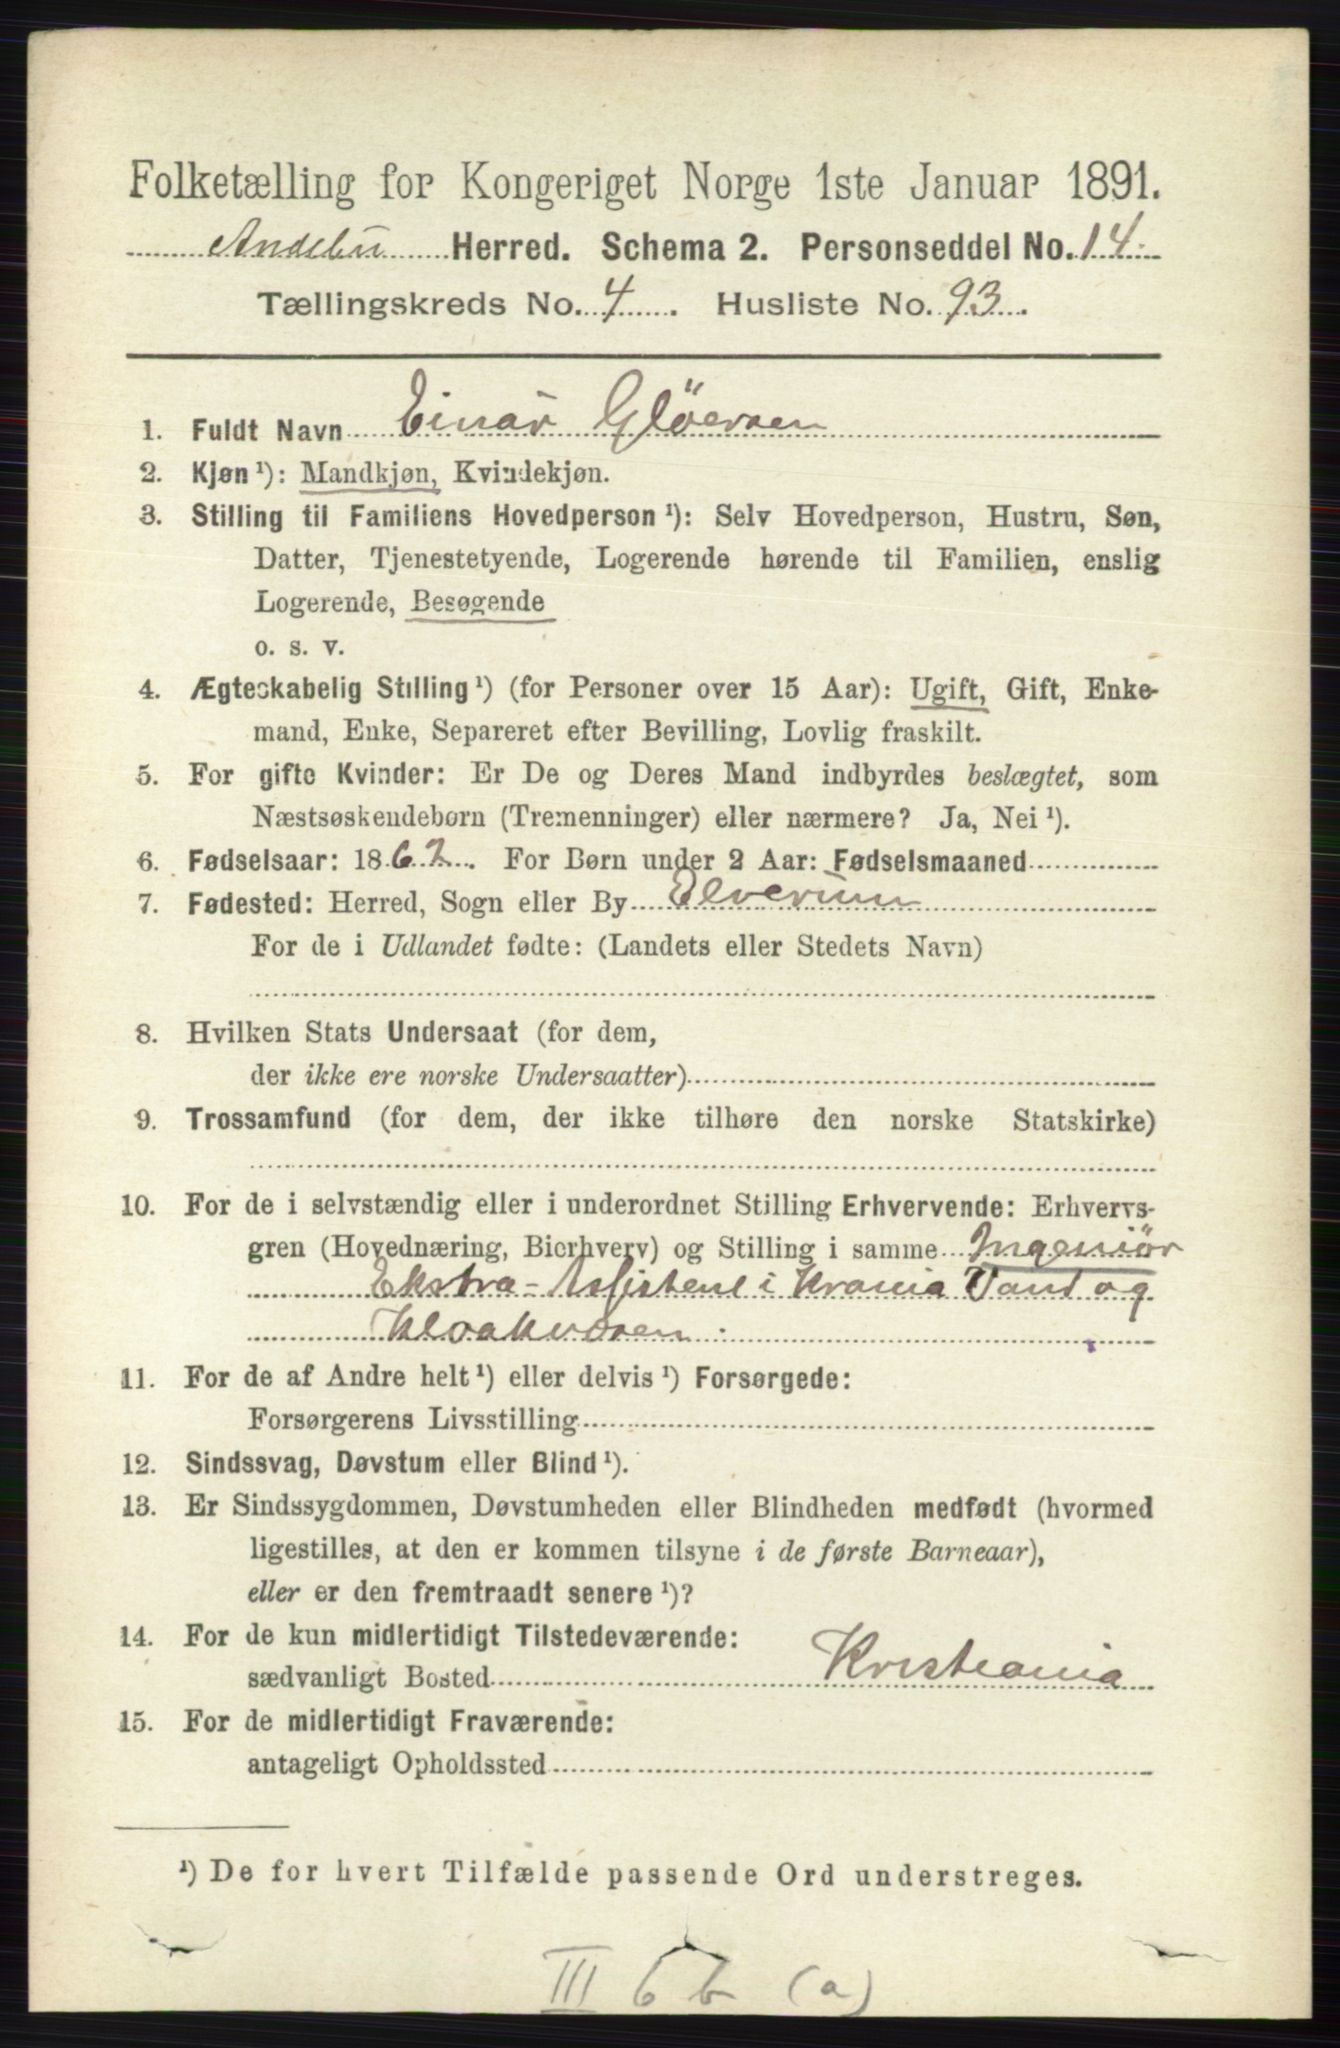 Folketælling for Kongeriget Norge 1ste Januar 1891.
Andebu Herred. Schema 2. Personseddel No. 14.
Tællingskreds No. 4. Husliste No. 93.
1. Fuldt Navn Einar Glöersen
2. Kjøn ¹): Mandkjøn, Kvindekjøn.
3. Stilling til Familiens Hovedperson ¹): Selv Hovedperson, Hustru, Søn,
Datter, Tjenestetyende, Logerende hørende til Familien, enslig
Logerende, Besøgende
o. s. v.
4. Ægteskabelig Stilling ¹) (for Personer over 15 Aar): Ugift, Gift, Enke-
mand, Enke, Separeret efter Bevilling, Lovlig fraskilt.
5. For gifte Kvinder: Er De og Deres Mand indbyrdes beslægtet, som
Næstsøskendebørn (Tremenninger) eller nærmere? Ja, Nei ¹).
6. Fødselsaar: 1862. For Børn under 2 Aar: Fødselsmaaned
7. Fødested: Herred, Sogn eller By Elverum
For de i Udlandet fødte: (Landets eller Stedets Navn)
8. Hvilken Stats Undersaat (for dem,
der ikke ere norske Undersaatter)
9. Trossamfund (for dem, der ikke tilhøre den norske Statskirke)
10. For de i selvstændig eller i underordnet Stilling Erhvervende: Erhvervs-
gren (Hovednæring, Bierhverv) og Stilling i samme Ingeniör
Ekstra-Assistent i Krania Vand og
Kloakvæsen.
11. For de af Andre helt ¹) eller delvis ¹) Forsørgede:
Forsørgerens Livsstilling
12. Sindssvag, Døvstum eller Blind ¹).
13. Er Sindssygdommen, Døvstumheden eller Blindheden medfødt (hvormed
ligestilles, at den er kommen tilsyne i de første Barneaar),
eller er den fremtraadt senere ¹)?
14. For de kun midlertidigt Tilstedeværende:
sædvanligt Bosted Kristiania
15. For de midlertidigt Fraværende:
antageligt Opholdssted
¹) De for hvert Tilfælde passende Ord understreges.
III 6 b (a)